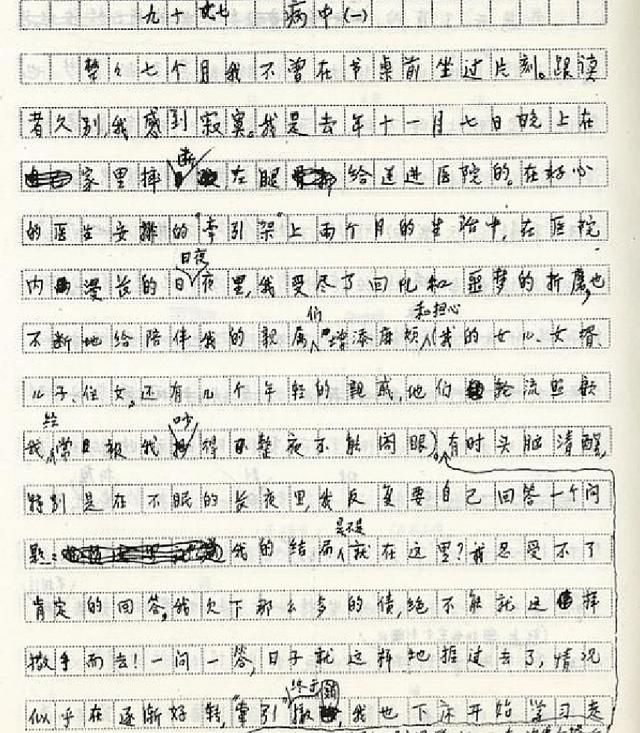 九十七 病中(一)
整々七个月我不曾在书桌前坐过片刻。跟读
者久别,我感到寂寞。我是去年十一月七日晚上在
家里摔断左腿给送进医院的。在好心
的医生安排的"牵引架"上两个月的生活中,在医院
内漫长的日夜里,我受尽了回忆和噩梦的折磨,也
不断地给陪伴我的亲属们增添麻烦和担心(我的女儿、女婿、
儿子、侄女,还有几个年轻的亲戚,他们轮流照顾
我,经常被我吵得整夜不能闭眼)。有时头脑清醒,
特别是在不眠的长夜里,我反复要自己回答一个问
题:我的结局是不是就在这里?我忍受不了
肯定的回答,我欠下那么多的债,绝不能就这样
撒手而去!一问一答,日子就这样地捱过去了,情况
似乎在逐渐好转,"牵引"终于撤销,我也下床开始学习走